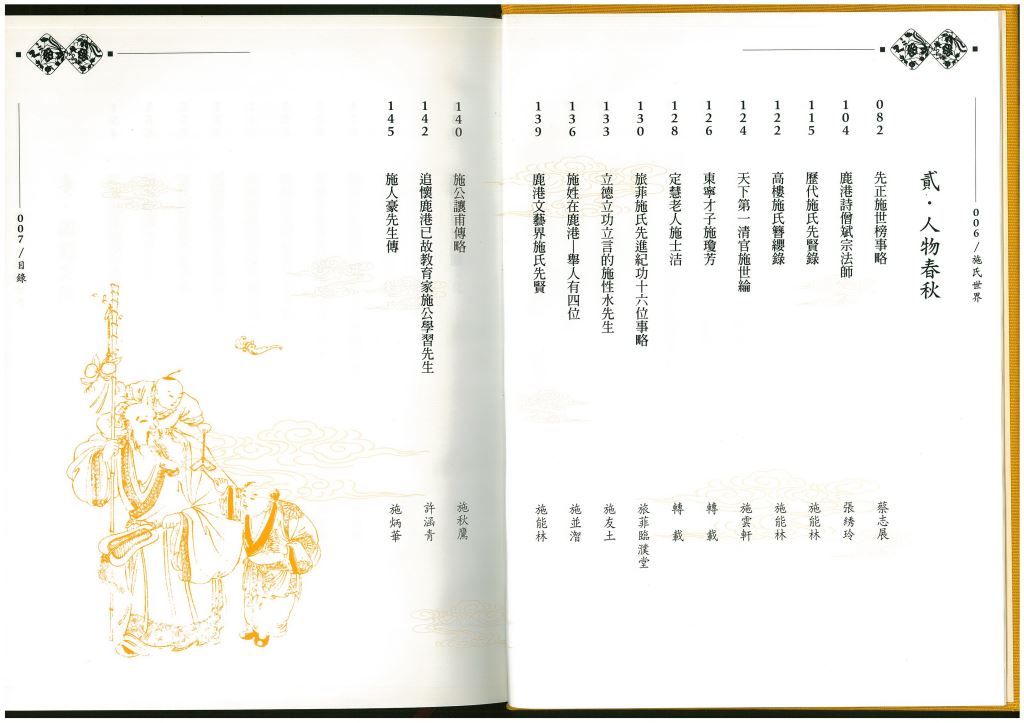 006/施氏世界
貳・人物春秋
082 先正施世榜事略 蔡志展
104 鹿港詩僧斌宗法師 張綉玲
115 歷代施氏先賢錄 施能林
122 高樓施氏簪纓錄 施能林
124 天下第一清官施世綸 施雲軒
126 東寧才子施瓊芳 轉載
128 定慧老人施士洁 轉載
130 旅菲施氏先進紀功十六位事略 旅菲臨濮堂
133 立德立功立言的施性水先生 施友土
136 施姓在鹿港—舉人有四位 施並溜
139 鹿港文藝界施氏先賢 施能林
140 施公讓甫傳略 施秋鷹
142 追懷鹿港已故教育家施公學習先生 許涵青
145 施人豪先生傳 施炳華
007/目錄